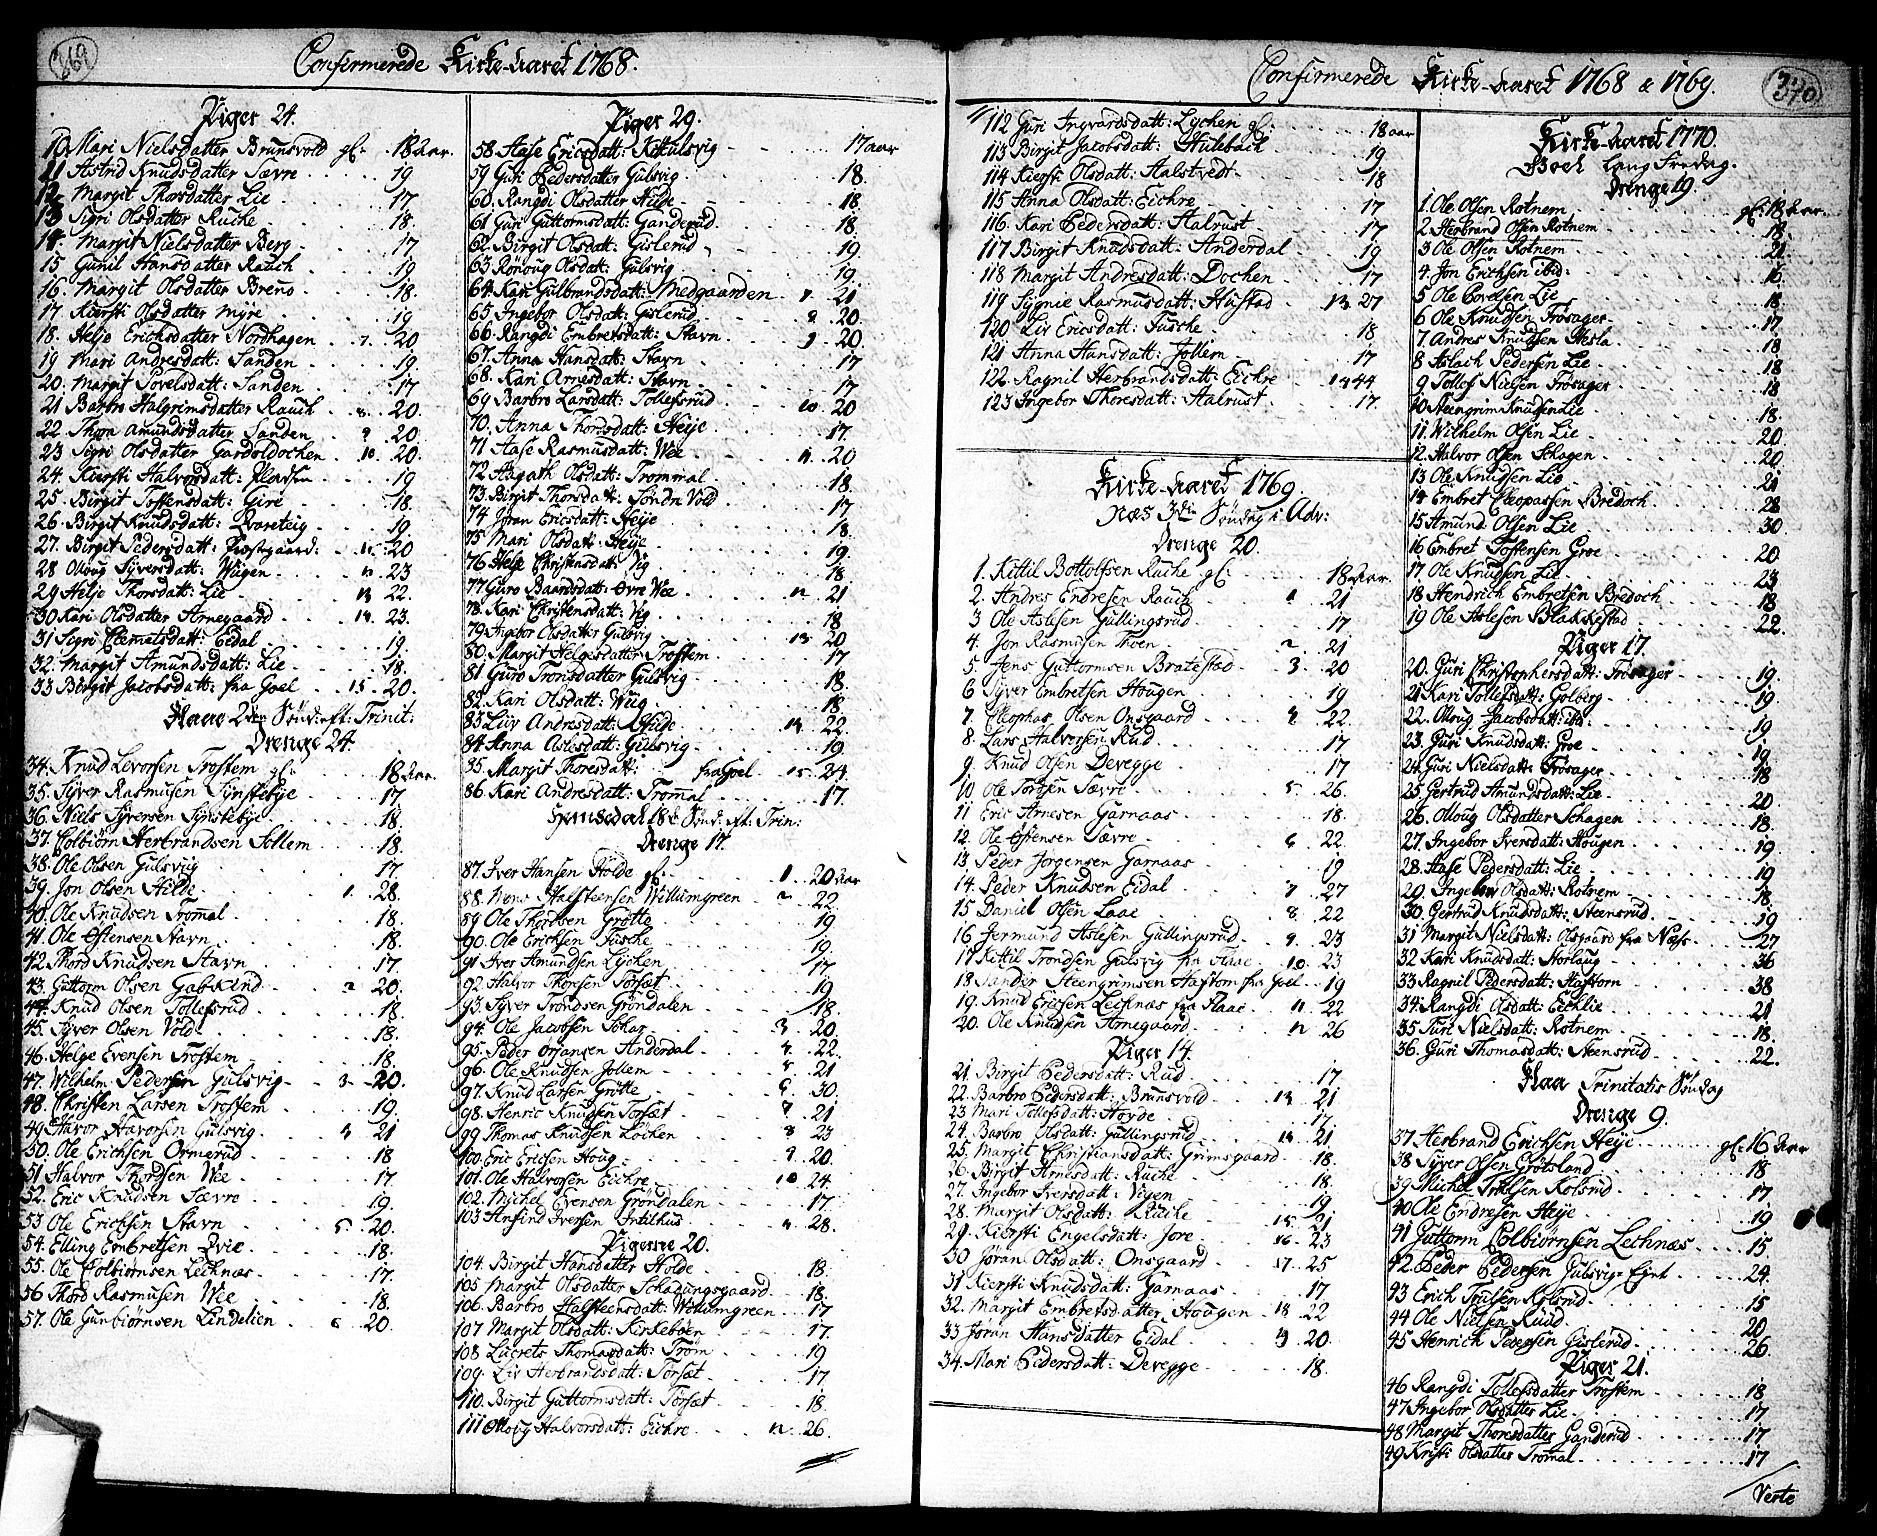 369
Confirmerede Kirke-Aaret 1768.
Piger 24.
10. Mari Nielsdatter Brunsvold gl: 18 Aar.
11 Astrid Knudsdatter Sævre 19
12. Margit Thorsdatter Lie 17
13 Sigri Olsdatter Ruche 18.
14. Margit Nielsdatter Berg 17
15 Gunil Hansdatter Rauch 19
16. Margit Olsdatter Breno 18.
17 Kiersti Olsdatter Myre 19
18. Helje Erichsdatter Nordhagen 7. 20
19 Mari Andresdatt: Sanden 19.
20. Margit Povelsdatt: Sanden 17
21 Barbro Halgrimsdatter Rauch 8. 20.
22. Thora Amundsdatter Sanden 9 20.
23 Sigri Olsdatter Gardoldochen 10. 20.
24. Kiersti Halvorsdatt: Pladsen 19
25. Birgit Tostensdatt: Gire 18.
26. Birgit Knudsdatt: Qvareteig 19
27. Birgit Pedersdatt: Præstgaard: 11. 20
28 Olloug Syversdatt: Wiigen 12 23
29 Helje Thorsdatt: Lie 13 22.
30 Kari Olsdatter Arnegaard 14. 23.
31 Sigri Clematsdatt: Eidal 19.
32. Margit Amundsdatt: Lie 18.
33 Birgit Jacobsdatt: fra Goel 15. 20.
Naae 2den Sønd: eft: Trinit:
Drenge 24.
34. Knud Levorsen Trostem gl: 18 Aar.
35. Syver Rasmusen Synstebye 17
36 Niels Syversen Synstebye 18.
37. Colbiørn Herbrandsen Sollem 18.
38. Ole Olsen Gulsviig 17
39. Jon Olsen Hilde 1. 28.
40. Ole Knudsen Tromal 18.
41. Ole Østensen Stavn 18.
42. Thord Knudsen Stavn 17
43. Guttorm Olsen Gabskind 2 20.
44. Knud Olsen Tollefsrud 18.
45. Syver Olsen Vold 18.
46. Helge Evensen Trostem 18.
47. Wilhelm Pedersen Gulsvig 3 20.
48. Christen Larsen Trostem 19.
49. Havor Havorsen Gulsvig 4 21
50. Ole Erichsen Ormerud 18
51 Halvor Thordsen Wee 17.
52. Eric Knudsen Sævre 19.
53 Ole Erichsen Stavn 5 20.
54. Elling Embretsen Qvie 18.
55. Ole Colbiørnsen Lechnæs 17.
56 Thord Rasmusen Wee 18.
57. Ole Gunbiørnsen Lindelien 6 20.
Piger 29.
58 Aase Ericsdatt: Kittulsvig 17 aar
59 Guri Pedersdatter Gulsvig 18.
60. Rangdi Olsdatter Hilde 18.
61 Guri Guttormsdatt: Ganderud 18.
62. Birgit Olsdatt: Gislerud 19.
63 Rønoug Olsdatt: Gulsvig 19.
64. Kari Gulbrandsdatt: Medgaarden 7 21
65. Ingebor Olsdatt: Gislerud 8 20.
66. Rangdi Embretsdatt: Stavn 9 20.
67. Anna Hansdatt: Stavn 17
68. Kari Arnesdatt: Stavn 17
69 Barbro Larsdatt: Tollefsrud 10 20
70. Anna Thordsdatt: Heije 17.
71 Aase Rasmusdatt: Wee 11 20
72 Aagath Olsdatt: Trommal 18.
73. Birgit Thorsdatt: Søndn Vold 17
74 Jøran Ericsdatt: Heije 18.
75 Mari Olsdatt: Heije 19.
76 Helje Christensdatt Vig 18
77 Guro Baardsdatt: Øvre Wee 12 21
78. Kari Christensdatt: Vig 18
79 Ingebor Olsdatter Gulsvig 13 20
80. Margit Helgesdatter Trostem 17
81 Guro Tronsdatter Gulsvig 18
82. Kari Olsdatt: Wiig 18
83 Liiv Andresdatt: Hilde 14 22.
84 Anna Aslesdatt: Gulsvig 19
85. Margit Thoresdatt: fra Goel 15 24.
86 Kari Andresdatt: Tromal 17.
Hemsedal 18de Sønd: eft: Trin:
Drenge 17.
87. Iver Hansen Holde gl: 1 20 aar
88. Halsteensen Willumgreen 2 22
89 Ole Thorksen Grøtte 19
90. Ole Erichsen Tusche 19.
91 Iver Amundsen Lychen 17
92. Halvor Thorsen Torset 19
93. Syver Trondsen Grøndalen 18.
94. Ole Jacobsen Sckar 3 20
95. Peder Ørjansen Anderdal 4 22.
96. Ole Knudsen Jollem 5 21
97. Knud Larsen Grøtte 6 30.
98. Henric Knudsen Torsæt 7 21
99 Thomas Knudsen Løcken 8 23
100. Eric Ericsen Houg 9 20.
101. Ole Halvorsen Eichre 10 24
102. Michel Evensen Grøndalen 17
103 Anfind Iversen Intilhus 11 28.
Pigerne 20.
104. Birgit Hansdatter Holde 18.
105 Margit Olsdatter Schadungsgaard 18.
106. Barbro Halsteensdatt: Willumgreen 17
107 Margit Olsdatt: Kirkebøen 17.
108 Lucrets Thomasdatt: Trøm 19
109. Liv Herbrandsdatt: Torsæt 17
110. Birgit Guttormsdatt: Torsæt 18.
111 Olloug Halvorsdatt: Eichre 12 26.
Confirmerede Kirke-Aaret 1768 & 1769.
370
112 Guri Ingvardsdatt: Lychen gl: 18 aar
113 Birgit Jacobsdatt: Hulbach 19
114 Kiersti Olsdatt: Halstvedt 18
115 Anna Olsdatt: Eichre 17
116. Kari Pedersdatt: Halrust 17
117 Birgit Knudsdatt: Anderdal 19
118 Margit Andresdatt: Dochen 17
119 Sygnie Rasmusdatt: Hustad 13 27
120 Liv Ericsdatt: Tusche 18
121 Anna Hansdatt: Jollem 17
122. Ragnil Herbrandsdatt: Eichre 14 44
123 Ingebor Thoresdatt: Halrust 17.
Kirke-Aaret 1769.
Næs 3die Søndag i Adv:
Drenge 20.
1. Kittil Bottolfsen Ruche gl: 18 Aar.
2. Andres Endresen Rauch 1 21
3 Ole Aslesen Gullingsrud 17
4. Jon Rasmusen Thoen 2 21
5. Jens Guttormsen Bratested 3. 20
6 Syver Embretsen Hougen 19
7. Cleophas Olsen Onsgaard 4 22.
8. Lars Halvorsen Rud 17
9. Knud Olsen Devegge 17
10 Ole Torgsen Sævre 5 26.
11 Eric Arnesen Garnaas 18.
12. Ole Østensen Sævre 6 22.
13. Peder Jørgensen Garnaas 19
14. Peder Knudsen Eidal 7 27
15 Daniel Olsen Laae 8 22
16 Jermund Aslesen Gullingsrud 9 23
17 Kittil Trondsen Gulsvig fra Flaae 10 23
18 Sander Steengrimsen Haftorn fra Goel 19
19. Knud Ericsen Lechnæs fra Flaae 11 22
20. Ole Knudsen Arnegaard 12 26
Piger 14.
21 Birgit Pedersdatt: Rud 17
22. Barbro Pedersdatt: Brunsvold 13 21
23 Mari Tollefsdatt: Hovde 17
24. Barbro Olsdatt: Gullingsrud 14 21
25. Margit Christiansdatt: Grimsgaard 18.
26. Birgit Arnesdatt: Ruche 18.
27. Ingebor Iversdatt: Vigen 19
28. Margit Olsdatt: Ruche 15 21
29. Kiersti Engelsdatt: Jore 16 23
30 Jøran Olsdatt: Onsgaard 17 25
31 Kiersti Knudsdatt: Garnaas 17
32. Margit Embretsdatter Hougen 18 22
33 Jøran Hansdatter Eidal 19 20.
34. Mari Pedersdatt: Devegge 18.
Kirke-Aaret 1770.
Goel Lang Fredag.
Drenge 19.
1. Ole Olsen Rotnem gl: 18 aar.
2. Herbrand Olsen Rotnem 18.
3 Ole Olsen Rotnem 21
4. Jon Erichsen ibid: 16.
5 Ole Povelsen Lie 18
6 Ole Knudsen Trøsager 17
7. Andres Knudsen Hesla 18
8 Aslach Pedersen Lie 18
9 Tollef Nielsen Trøsager 18
10 Steengrim Knudsen Lie 18.
11. Wilhelm Olsen Lie 20
12. Halvor Olsen Schagen 20
13 Ole Knudsen Lie 21
14 Embret Cleopassen Bredoch 28
15 Amund Olsen Lie 30.
16 Embret Tostensen Groe 20
17. Ole Knudsen Lie 23
18 Hendrich Embretsen Bredoch 18
19 Ole Aslesen Blakkestad 22.
Piger 17.
20. Guri Christophersdatt: Trøsager 19.
21 Kari Tollefsdatt: Golberg 19
22. Olloug Jacobsdatt: ibd: 19
23. Guri Knudsdatt: Groe 19.
24. Guri Nielsdatt: Trøsager 18
25 Gertrud Amundsdatt: Lie 20
26. Olloug Olsdatter Schagen 18
27. Ingebor Iversdatt: Hougen 19.
28. Aase Pedersdatt: Lie 19
29. Ingebor Olsdatt: Rotnem 18.
30. Gertrud Knudsdatt: Steensrud 19
31 Margit Nielsdatt: Olsgaard fra Næss 27
32 Kari Knudsdatt: Storlaug 36
33 Ragnil Pedersdatt: Haftorn 38
34. Rangdi Olsdatt: Eichlie 21
35 Turi Nielsdatt: Rotnem 18.
36. Guri Thomasdatt: Steensrud 22.
Naa Trinitatis Søndag
Drenge 9.
37 Herbrand Erichsen Heije gl: 16 Aar
38 Syver Olsen Grøtsland 18
39 Michel Trulsen Kolsrud 17
40 Ole Endresen Heije 19
41 Guttorm Colbiørnsen Lechnæs 15
42 Peder Pedersen Gulsvig-Ejet 24.
43 Erich Trulsen Kolsrud 15
44 Ole Nielsen Ruud 20
45 Henrich Pedersen Gislerud 26.
Piger 21.
46 Rangdi Tollefsdatter Trostem 18
47 Ingebor Olsdatter Lie 17
48 Margit Thoresdatter Ganderud 17
49 Kristi Olsdatter Tromal 17
Verte